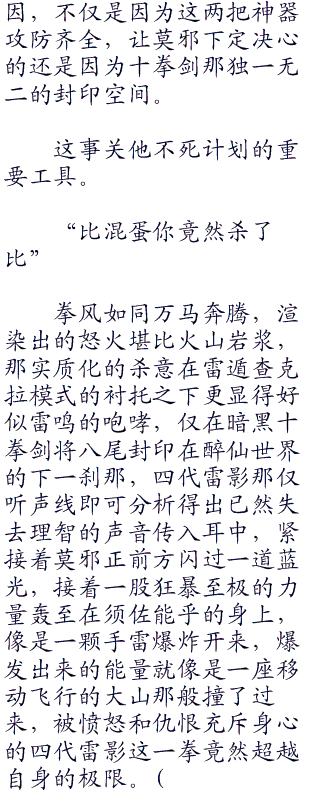 因，不仅是因为这两把神器
攻防齐全，让莫邪下定决心
的还是因为十拳剑那独一无
二的封印空间。
这事关他不死计划的重
要工具。
“比混蛋你竟然杀了
比”
拳风如同万马奔腾，渲
染出的怒火堪比火山岩浆，
那实质化的杀意在雷遁查克
拉模式的衬托之下更显得好
似雷鸣的咆哮，仅在暗黑十
拳剑将八尾封印在醉仙世界
的下一刹那，四代雷影那仅
听声线即可分析得出已然失
去理智的声音传入耳中，紧
接着莫邪正前方闪过一道蓝
光，接着一股狂暴至极的力
量轰至在须佐能乎的身上，
像是一颗手雷爆炸开来，爆
发出来的能量就像是一座移
动飞行的大山那般撞了过
来，被愤怒和仇恨充斥身心
的四代雷影这一拳竟然超越
自身的极限。（